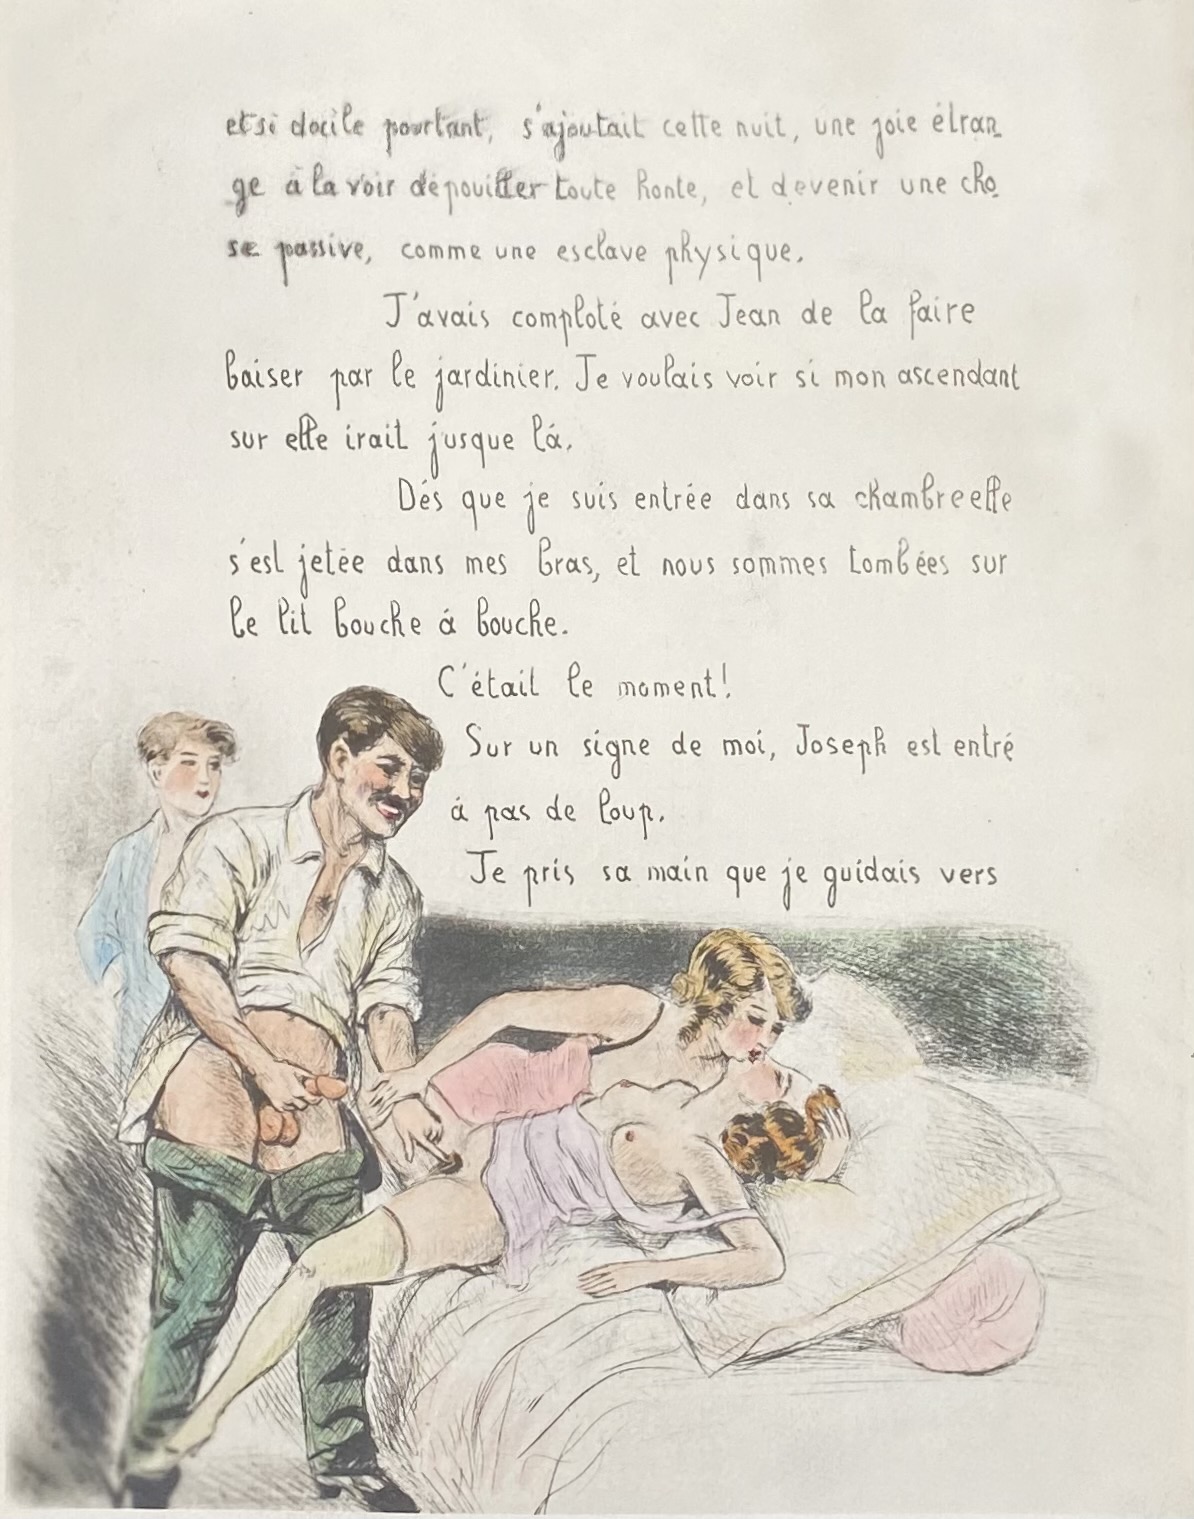 et si docile pourtant, s'ajoutait cette nuit, une joie étran
ge à la voir dépouiller toute honte, et devenir une cho
se passive, comme une esclave physique.
J'avais comploté avec Jean de la faire
baiser par le jardinier. Je voulais voir si mon ascendant
sur elle irait jusque là.
Dés que je suis entrée dans sa chambre elle
s'est jetée dans mes bras, et nous sommes tombées sur
le lit bouche á bouche.
C'était le moment!
Sur un signe de moi, Joseph est entré
á pas de loup.
Je pris sa main que je guidais vers